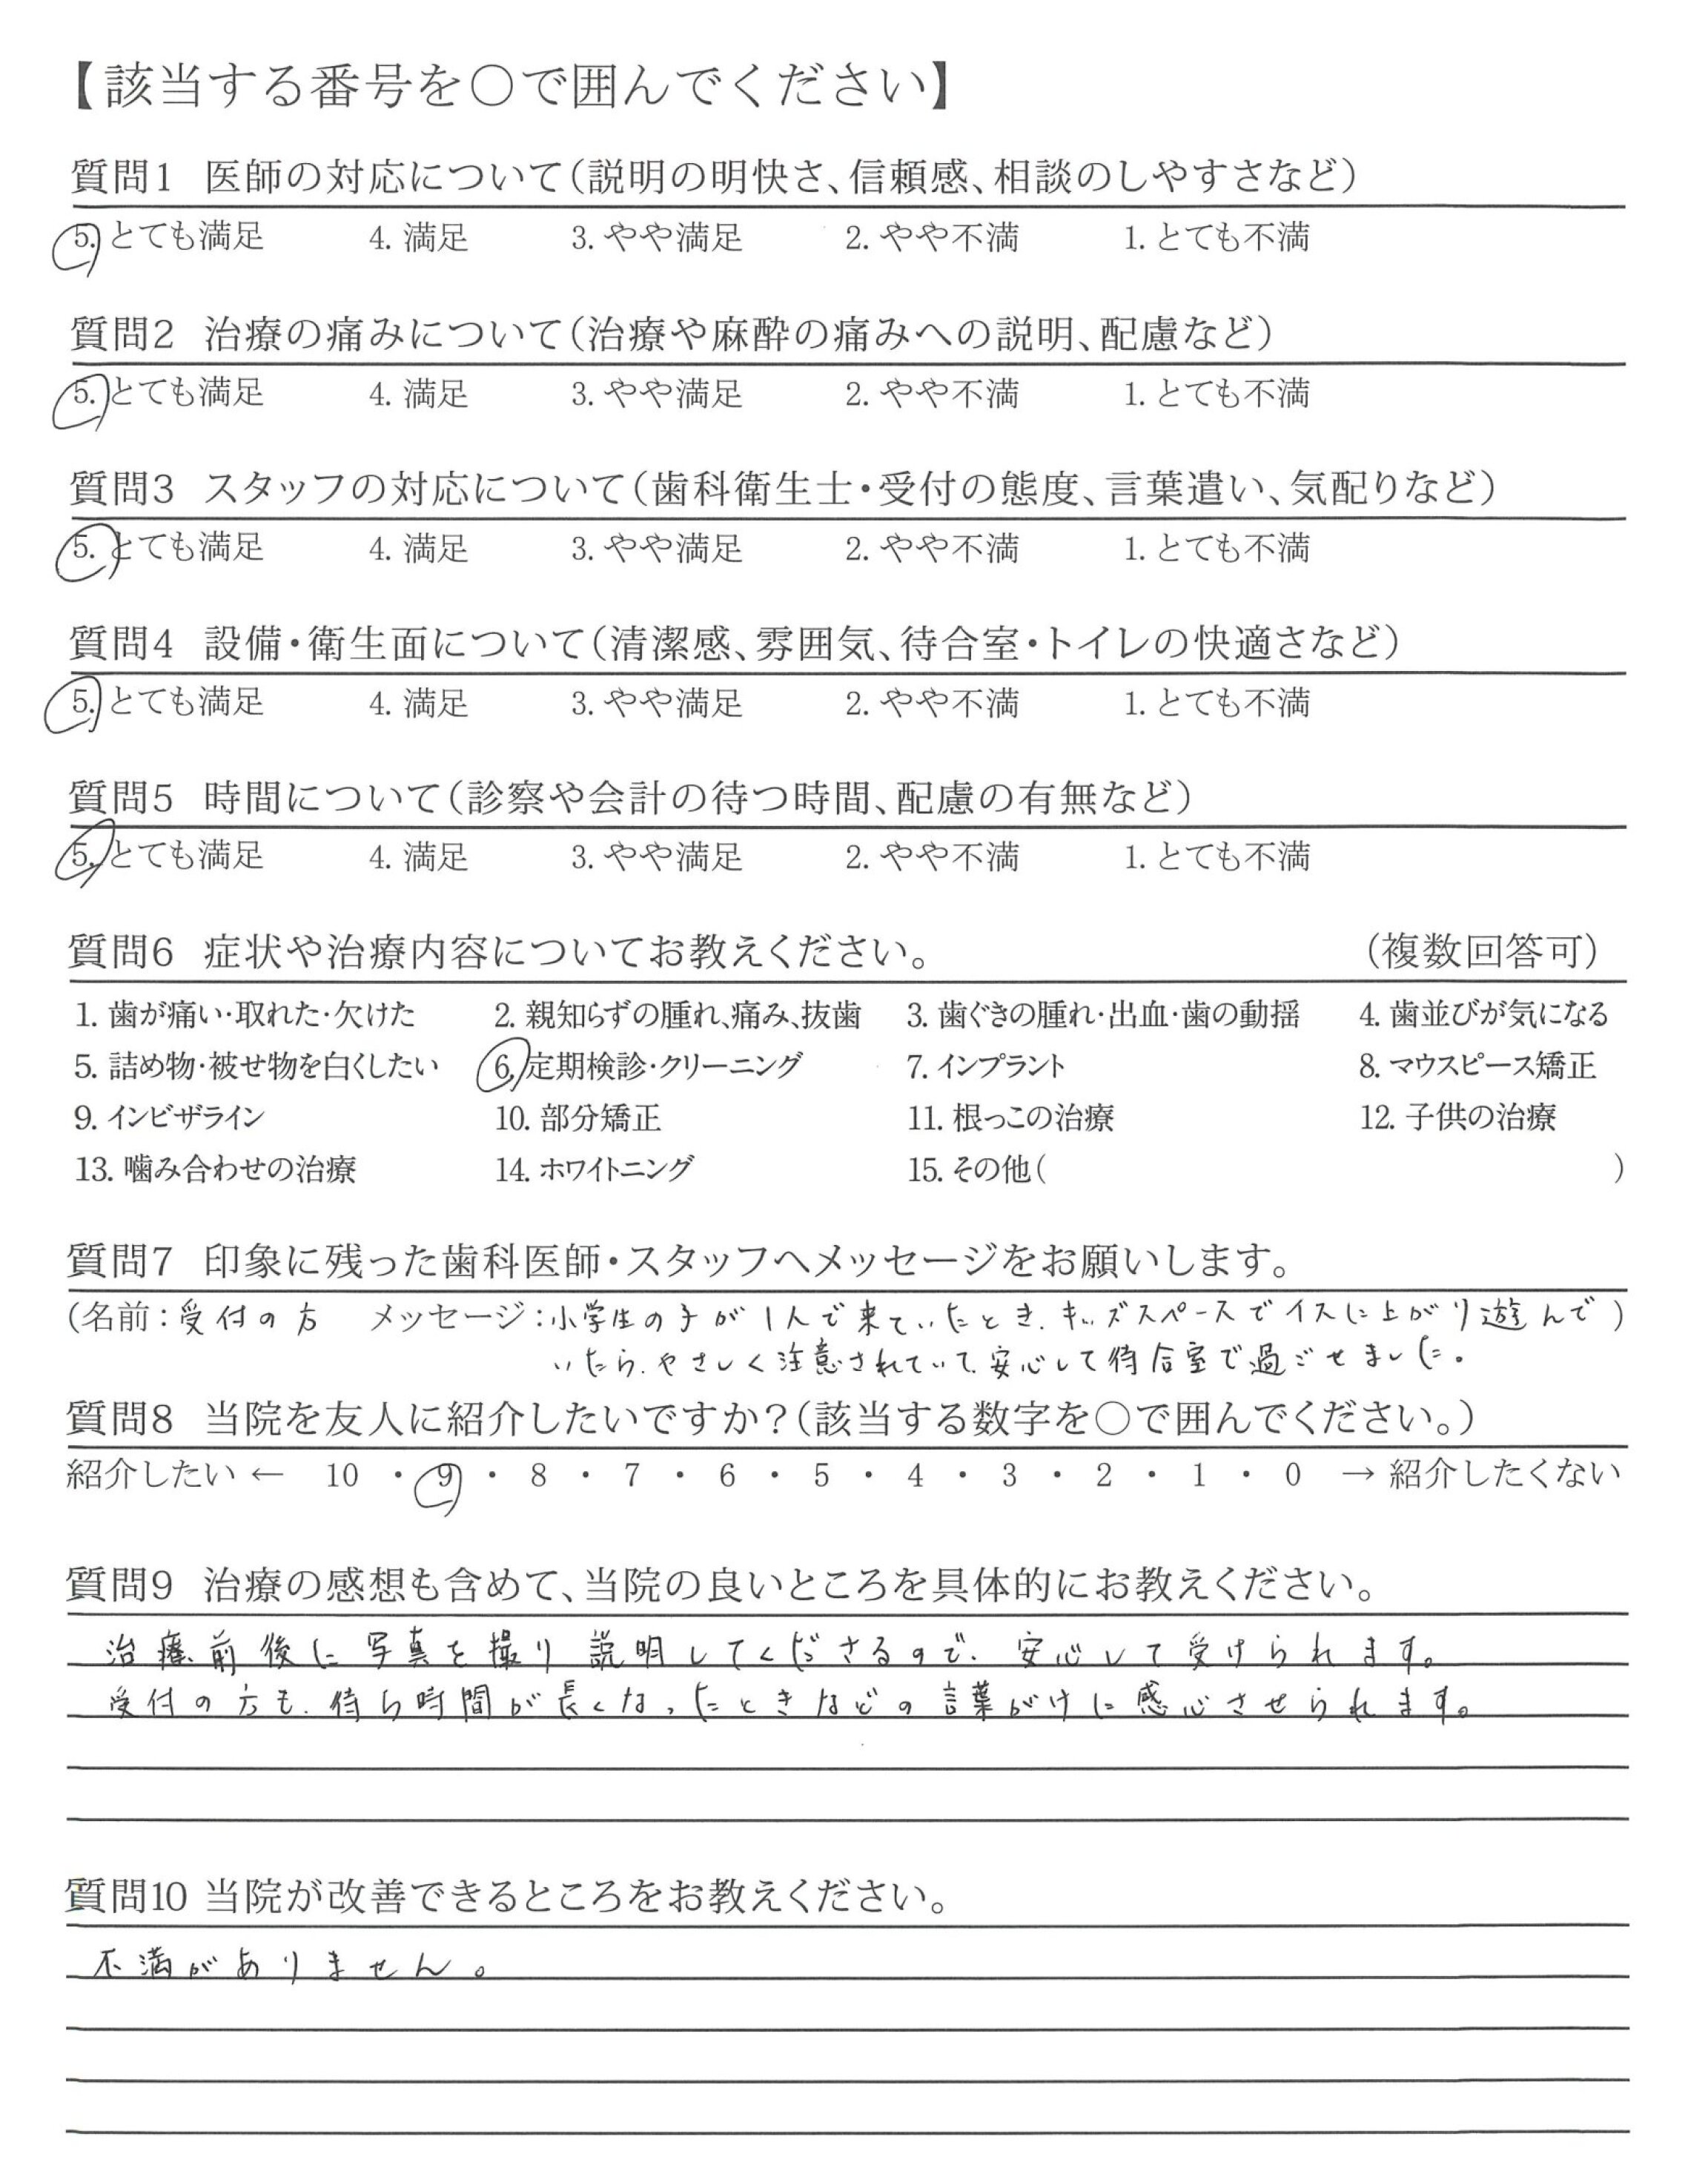 【該当する番号を○で囲んでください】
質問1 医師の対応について(説明の明快さ、信頼感、相談のしやすさなど)
5. とても満足 4. 満足 3. やや満足 2. やや不満 1. とても不満
質問2 治療の痛みについて(治療や麻酔の痛みへの説明、配慮など)
5. とても満足 4. 満足 3. やや満足 2. やや不満 1. とても不満
質問3 スタッフの対応について(歯科衛生士・受付の態度、言葉遣い、気配りなど)
5. とても満足 4. 満足 3. やや満足 2. やや不満 1. とても不満
質問4 設備・衛生面について(清潔感、雰囲気、待合室・トイレの快適さなど)
5. とても満足 4. 満足 3. やや満足 2. やや不満 1. とても不満
質問5 時間について(診察や会計の待つ時間、配慮の有無など)
5. とても満足 4. 満足 3. やや満足 2. やや不満 1. とても不満
質問6 症状や治療内容についてお教えください。 (複数回答可)
1. 歯が痛い・取れた・欠けた 2. 親知らずの腫れ、痛み、抜歯 3. 歯ぐきの腫れ・出血・歯の動揺 4. 歯並びが気になる
5. 詰め物・被せ物を白くしたい 6. 定期検診・クリーニング 7. インプラント 8. マウスピース矯正
9. インビザライン 10. 部分矯正 11. 根っこの治療 12. 子供の治療
13. 噛み合わせの治療 14. ホワイトニング 15. その他( )
質問7 印象に残った歯科医師・スタッフへメッセージをお願いします。
(名前：受付の方 メッセージ：小学生の子が1人で来ていたとき、キッズスペースでイスに上がり遊んで)
いたら、やさしく注意されていて、安心して待合室で過ごせました。
質問8 当院を友人に紹介したいですか？(該当する数字を○で囲んでください。)
紹介したい ← 10 ・ 9 ・ 8 ・ 7 ・ 6 ・ 5 ・ 4 ・ 3 ・ 2 ・ 1 ・ 0 → 紹介したくない
質問9 治療の感想も含めて、当院の良いところを具体的にお教えください。
治療前後に写真を撮り説明してくださるので、安心して受けられます。
受付の方も、待ち時間が長くなったときなどの言葉がけに感心させられます。
質問10 当院が改善できるところをお教えください。
不満がありません。